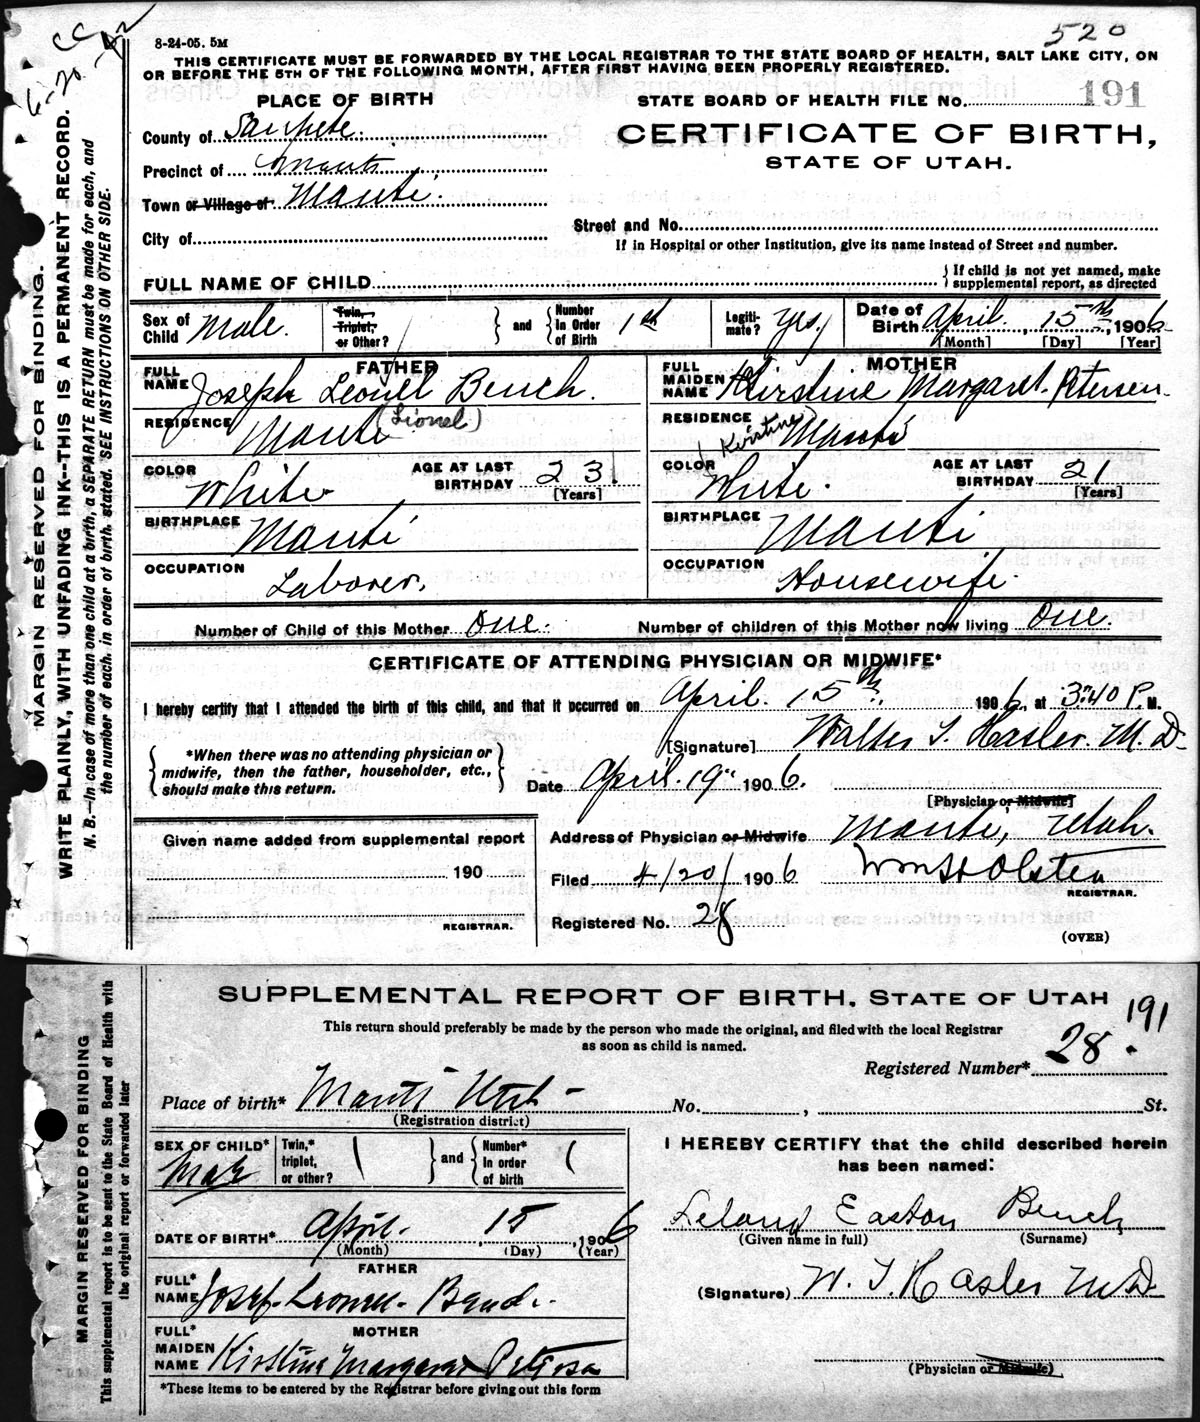 8-24-05. 5M
520
CC
6-20-42
THIS CERTIFICATE MUST BE FORWARDED BY THE LOCAL REGISTRAR TO THE STATE BOARD OF HEALTH, SALT LAKE CITY, ON
OR BEFORE THE 5TH OF THE FOLLOWING MONTH, AFTER FIRST HAVING BEEN PROPERLY REGISTERED.
MARGIN RESERVED FOR BINDING.
WRITE PLAINLY, WITH UNFADING INK--THIS IS A PERMANENT RECORD.
N. B.—In case of more than one child at a birth, a SEPARATE RETURN must be made for each, and
the number of each, in order of birth, stated. SEE INSTRUCTIONS ON OTHER SIDE.
PLACE OF BIRTH
County of Sanpete.
Precinct of Manti
Town or Village of Manti.
City of
STATE BOARD OF HEALTH FILE NO. 191
CERTIFICATE OF BIRTH,
STATE OF UTAH.
Street and No.
If in Hospital or other Institution, give its name instead of Street and number.
FULL NAME OF CHILD
{ If child is not yet named, make
supplemental report, as directed
Sex of Child Male.
Twin, Triplet, or Other? } and { Number in Order of Birth 1st
Legiti-mate? Yes.
Date of Birth April, 15th, 1906
[Month] [Day] [Year]
FATHER
FULL NAME Joseph Leonel Bench.
(Lionel)
RESIDENCE Manti
COLOR White
AGE AT LAST BIRTHDAY 23
[Years]
BIRTHPLACE Manti
OCCUPATION Laborer.
MOTHER
FULL MAIDEN NAME Kirstine Margaret Petersen.
(Kirstine)
RESIDENCE Manti
COLOR White.
AGE AT LAST BIRTHDAY 21
[Years]
BIRTHPLACE Manti
OCCUPATION Housewife.
Number of Child of this Mother One. Number of children of this Mother now living One.
CERTIFICATE OF ATTENDING PHYSICIAN OR MIDWIFE*
I hereby certify that I attended the birth of this child, and that it occurred on April. 15th. 1906, at 3:40 P.M.
{ *When there was no attending physician or
midwife, then the father, householder, etc.,
should make this return. }
[Signature] Walter T. Hasler. M.D.
Date April. 19" 1906.
[Physician or Midwife]
Given name added from supplemental report
190
REGISTRAR.
Address of Physician or Midwife Manti, Utah.
Filed 4/20/ 1906 Wm H Olsten
REGISTRAR.
Registered No. 28
(OVER)
SUPPLEMENTAL REPORT OF BIRTH, STATE OF UTAH
191
This return should preferably be made by the person who made the original, and filed with the local Registrar
as soon as child is named.
Registered Number* 28.
MARGIN RESERVED FOR BINDING
This supplemental report is to be sent to the State Board of Health with
the original report or forwarded later
Place of birth* Manti Utah
(Registration district)
No. , St.
SEX OF CHILD* Male
Twin,* triplet, or other? } and { Number* in order of birth
DATE OF BIRTH* April. , 15 , 1906
(Month) (Day) (Year)
FATHER
FULL* NAME Josef Leonel Bench.
MOTHER
FULL* MAIDEN NAME Kirstine Margaret Petersen
*These items to be entered by the Registrar before giving out this form
I HEREBY CERTIFY that the child described herein
has been named:
Leland Easton Bench
(Given name in full) (Surname)
(Signature) W. T. Hasler M.D.
(Physician or Midwife)